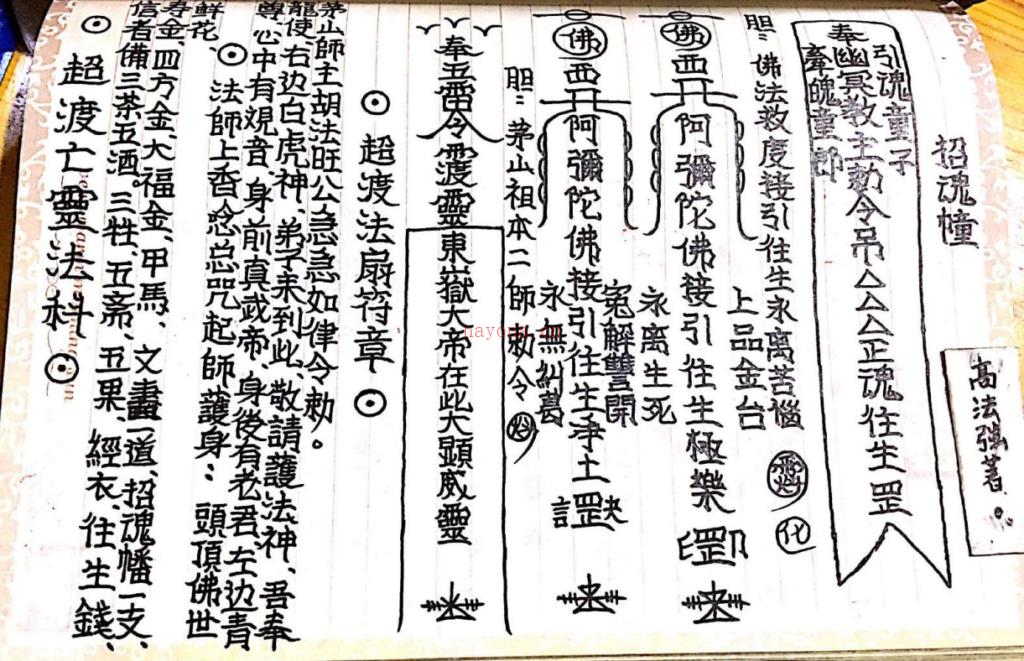 ⊙ 超渡亡靈法科 ⊙
信者備三茶五酒。三牲、五斋、五果、經衣、往生錢、
寿金、四方金、大福金、甲馬、文畫一道、招魂幡一支、
鲜花、
⊙ 法師上香念总咒起師護身：頭頂佛世
尊心中有观音、身前真武帝、身後有老君左边青
龍使右边白虎神、弟子来到此、敬請護法神、吾奉
茅山師主胡法旺公急急如律令勅。
⊙ 超渡法扇符章 ⊙
奉五雷令渡靈東嶽大帝在此大顯威靈
胆：茅山祖本二師勅令
永無糾葛
佛西阿彌陀佛接引往生淨土罡
冤解讐開
永离生死
佛西阿彌陀佛接引往生極樂罡
上品金台
胆：佛法救度接引往生永离苦惱 化
牽魄童郎
奉幽冥教主勅令吊△△△正魂往生罡
引魂童子
招魂幢
高法强著。
nayona.cn